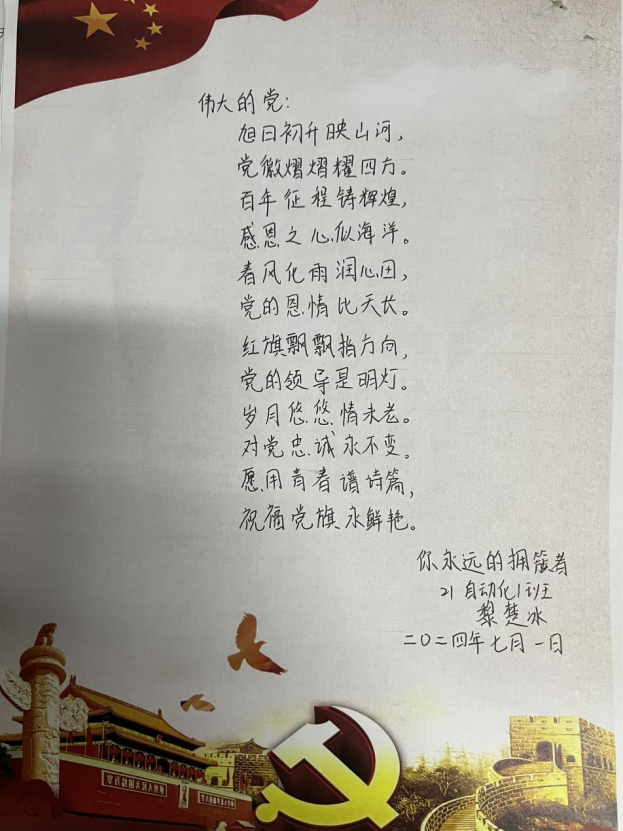 伟大的党:
旭日初升映山河,
党徽熠熠耀四方。
百年征程铸辉煌,
感恩之心似海洋。
春风化雨润心田,
党的恩情比天长。
红旗飘飘指方向,
党的领导是明灯。
岁月悠悠情未老。
对党忠诚永不变。
愿用青春谱诗篇,
祝福党旗永鲜艳。
你永远的拥笨者
21自动化1班
黎楚冰
二〇二四年七月一日